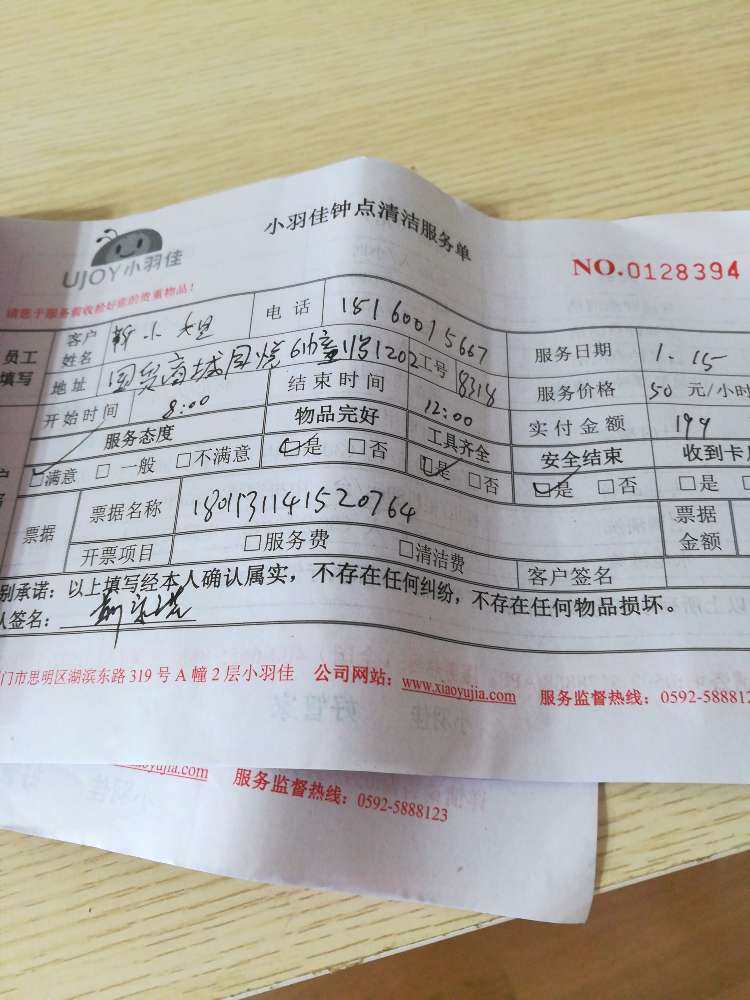 小羽佳钟点清洁服务单
UJOY小羽佳
NO.0128394
请您于服务前收拾好您的贵重物品!
员工填写 客户姓名 靳小姐 电话 15160015667 服务日期 1.15
地址 国贸商城同悦 1202 工号 8318 服务价格 50 元/小时
开始时间 8:00 结束时间 12:00 实付金额 194
服务态度 物品完好 工具齐全 安全结束 收到卡
☑满意 □一般 □不满意 ☑是 □否 ☑是 □否 ☑是 □否 □是
票据 票据名称 1801131141520764 票据金额
开票项目 □服务费 □清洁费 客户签名
别承诺:以上填写经本人确认属实,不存在任何纠纷,不存在任何物品损坏。
人签名:
门市思明区湖滨东路 319 号 A 幢 2 层小羽佳 公司网站:www.xiaoyujia.com 服务监督热线:0592-588812
aoyujia.com 服务监督热线:0592-5888123